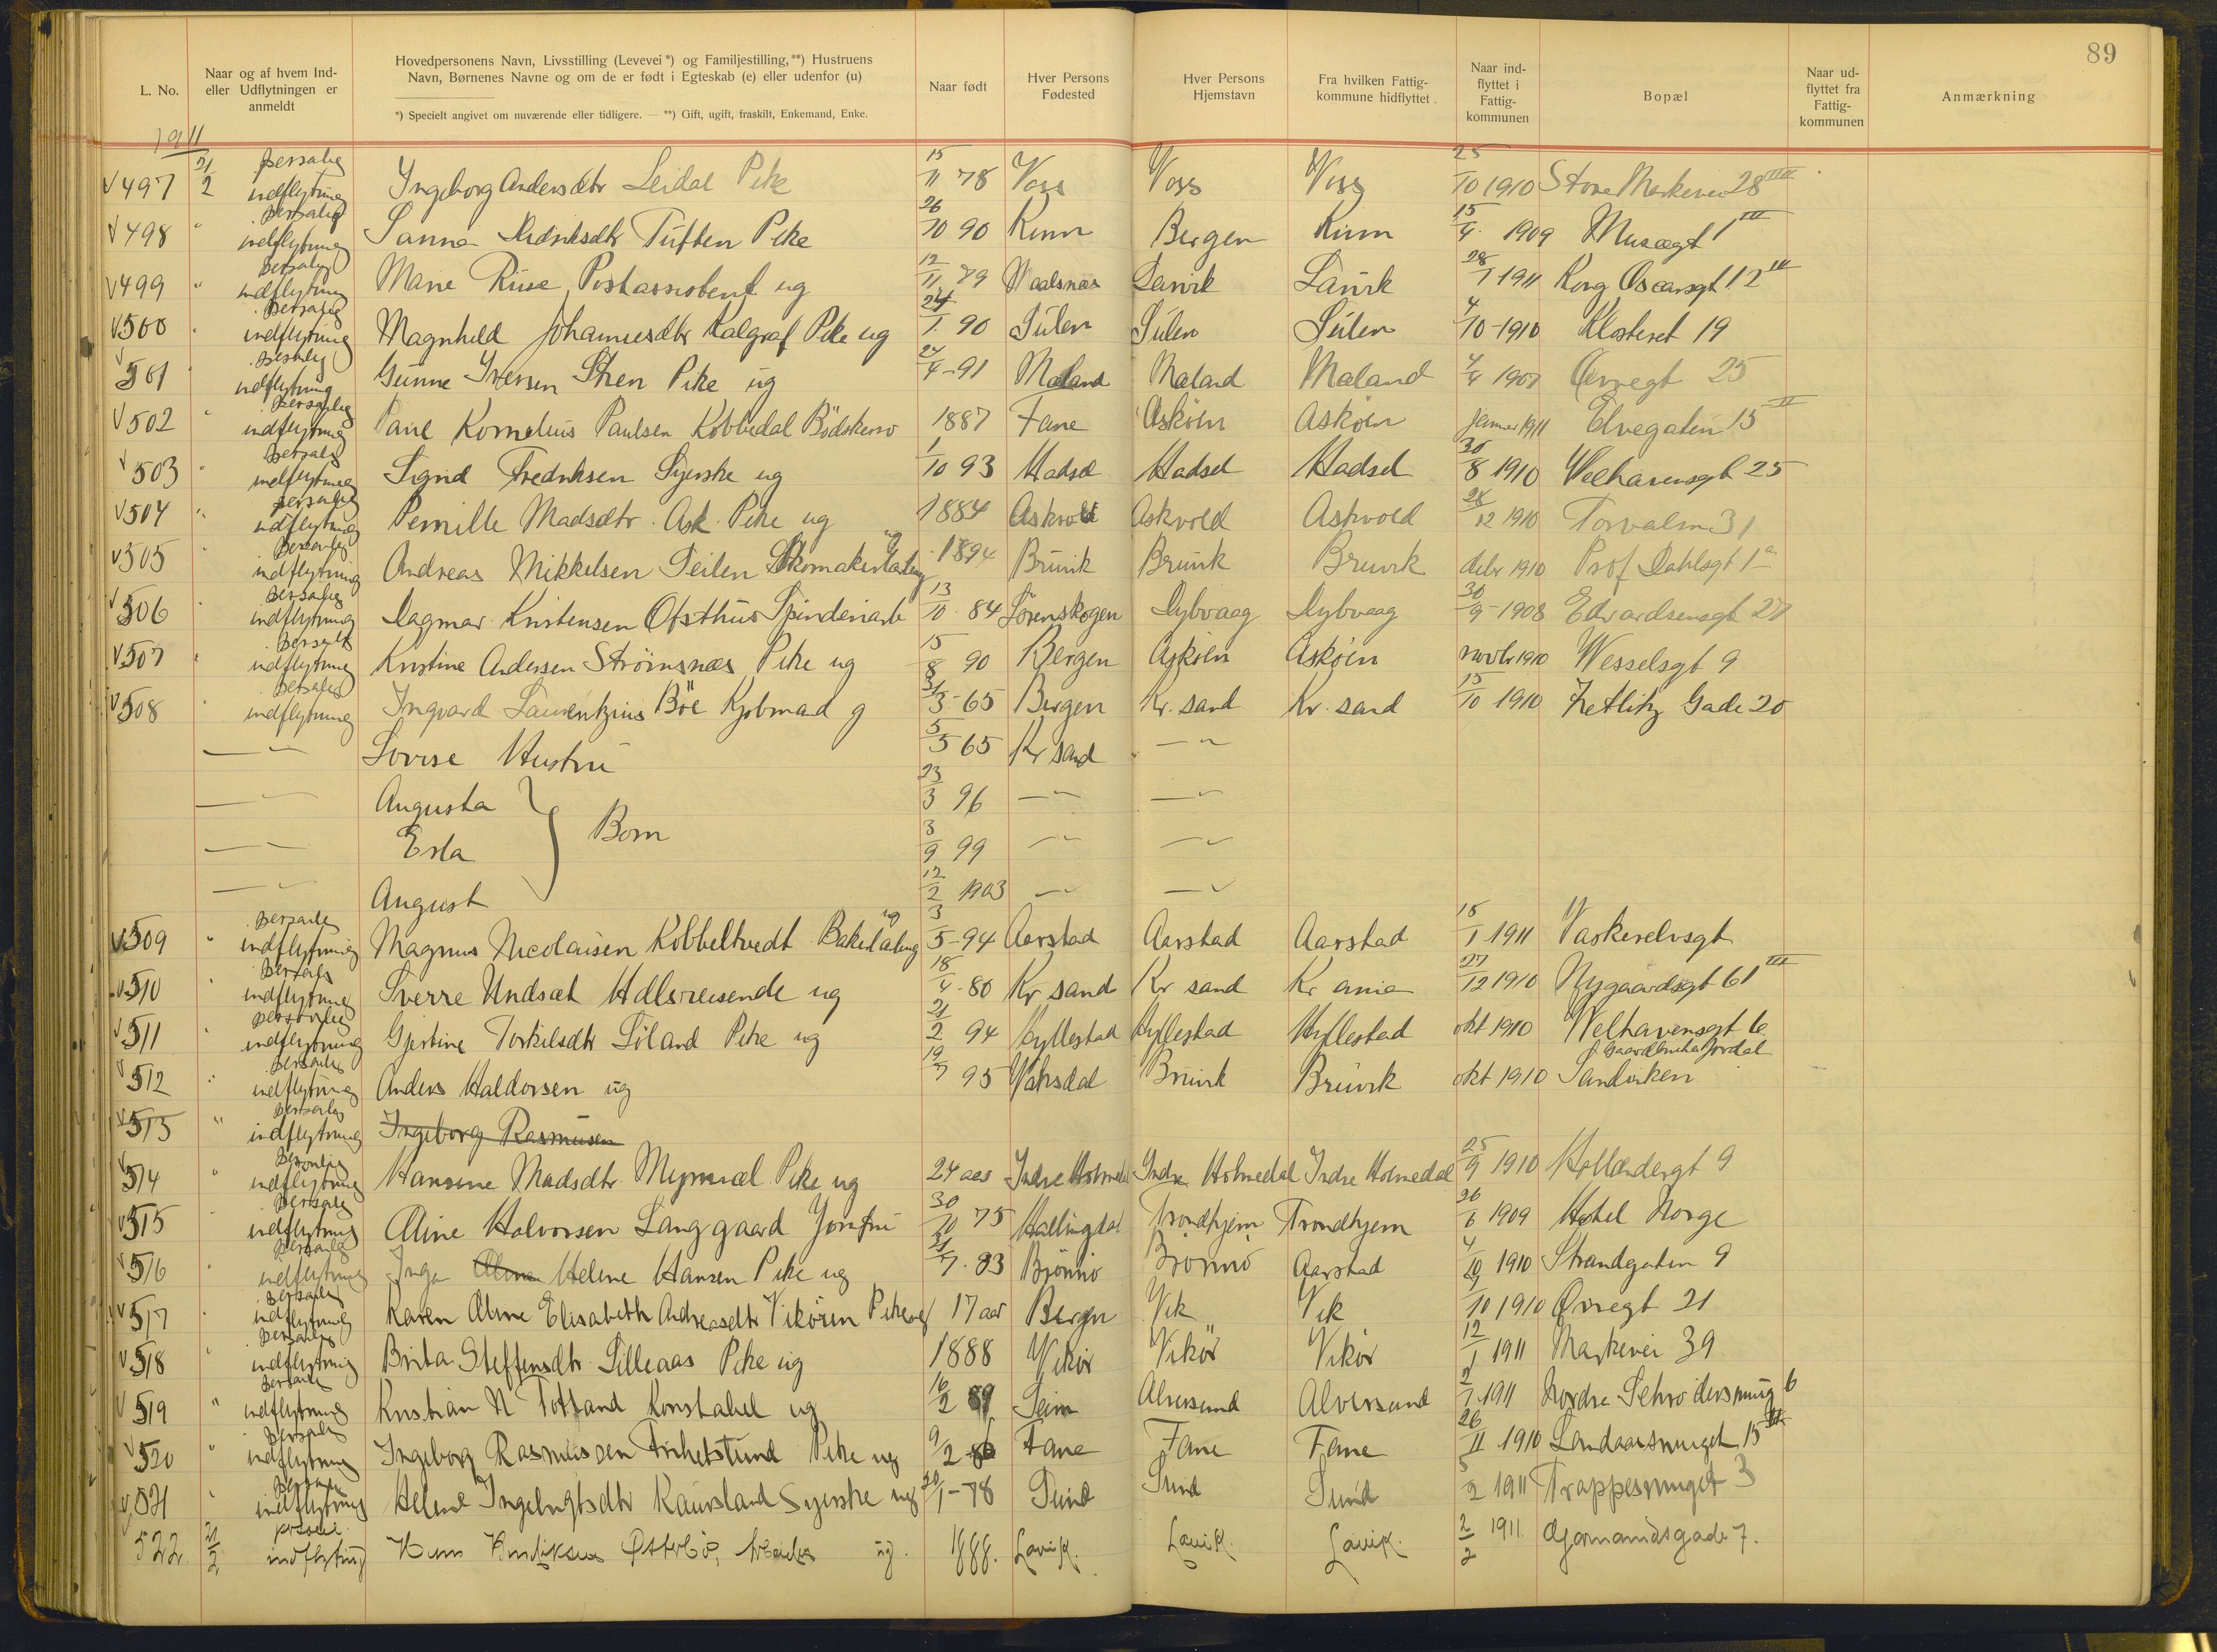 89
L. No.
Naar og af hvem Ind- eller Udflytningen er anmeldt
Hovedpersonens Navn, Livsstilling (Levevei*) og Familjestilling,**) Hustruens Navn, Børnenes Navne og om de er født i Egteskab (e) eller udenfor (u)
*) Specielt angivet om nuværende eller tidligere. — **) Gift, ugift, fraskilt, Enkemand, Enke.
Naar født
Hver Persons Fødested
Hver Persons Hjemstavn
Fra hvilken Fattig- kommune hidflyttet.
Naar ind- flyttet i Fattig- kommunen
Bopæl
Naar ud- flyttet fra Fattig- kommunen
Anmærkning
1911
497 21/2 personlig indflytning Ingeborg Andersdtr Leidal Pike 15/11 78 Voss Voss Voss 25/10 1910 Store Markevei 28 III
498 " personlig indflytning Sanna Tuften Pike 26/10 90 Kinn Bergen Kinn 15/4 1909 Musægt 1 III
499 " personlig indflytning Marie Ruse, Postassistent ug 12/11 79 Laurvik Laurvik 28/1 1911 Kong Oscarsgt 12 III
500 " personlig indflytning Magnhild Johannesdtr Kalgraf Pike ug 24/1 90 Sulen Sulen Sulen 4/10 1910 Klosteret 19
501 personlig indflytning Gunne Iversen Steen Pike ug 24/4 - 91 Maland Maland Maland 4/4 1907 Øvregt 25
502 " personlig indflytning Paul Kornelius Paulsen Kobbedal Bödskersv 1887 Fane Asköen Asköen Januar 1911 Elvegaten 15 II
503 " personlig indflytning Sigrid Fredriksen Syerske ug 1/10 93 Hadsel Hadsel Hadsel 30/8 1910 Welhavensgt 25
504 " personlig indflytning Pernille Madsdtr. Ask. Pike ug 1884 Askvold Askvold Askvold 28/12 1910 Torvalm 31
505 " personlig indflytning Andreas Mikkelsen Teilen Skomakerlærling ug 1894 Bruvik Bruvik Bruvik debr 1910 Prof Dahlsgt 1 a
506 " personlig indflytning Dagmar Kristensen Ofsthus Spinderiarb 13/10 84 Sörenskogen Dybvaag Dybvaag 30/9 - 1908 Edvardsensgt 27
507 " personlig indflytning Kristine Andersen Strömsnæs Pike ug 15/8 90 Bergen Asköen Asköen novbr 1910 Wesselsgt 9
508 " personlig indflytning Ingvard Laurentzius Böe Kjøbmand g 31/3 - 65 Bergen Kr. sand Kr. sand 15/10 1910 Zetlitz Gade 20
— " — Lovise Hustru 5/5 65 Kr sand — " —
— " — Augusta } Born 23/3 96 — " — — " —
— " — Esta 3/9 99 — " — — " —
— " — August 12/2 1903 — " — — " —
509 " personlig indflytning Magnus Nicolaisen Kobbeltvedt Bakerlærling ug 3/5 - 94 Aarstad Aarstad Aarstad 18/1 1911 Vaskerelvsgt
510 " personlig indflytning Sverre Undsæt Hdlsreisende ug 18/4 - 80 Kr sand Kr sand Kr ania 27/12 1910 Nygaardsgt 61 III
511 " personlig indflytning Gjertine Torkilsdtr Söland Pike ug 21/2 94 Hyllestad Hyllestad Hyllestad okt 1910 Welhavensgt 6
512 " personlig indflytning Anders Haldorsen ug 19/7 95 Vaksdal Bruvik Bruvik okt 1910 Gaardbruker Jordal Sandviken
513 " personlig indflytning Ingeborg Rasmusen
514 " personlig indflytning Hansine Madsdtr. Myrmæl Pike ug 24 aar Indre Holmedal Indre Holmedal Indre Holmedal 25/9 1910 Hollændergt 9
515 personlig indflytning Oline Halvorsen Langgaard Jomfru 30/10 75 Hallingdal Trondhjem Trondhjem 26/6 1909 Hotel Norge
516 personlig indflytning Inga Helene Hansen Pike ug 31/7 . 93 Brönnö Brönnö Aarstad 4/10 1910 Strandgaten 9
517 personlig indflytning Karen Oline Elisabeth Andreasdtr Vikören Pike ug 17 aar Bergen Vik Vik 9/10 1910 Øvregt 21
518 " personlig indflytning Brita Steffensdtr Lilleaas Pike ug 1888 Vikör Vikör Vikör 12/1 1911 Markevei 39
519 " personlig indflytning Kristian N Totland Konstabel ug 16/2 89 Seim Alversund Alversund 2/1 1911 Nordre Schrödersmug 6
520 " personlig indflytning Ingeborg Rasmussen Frihetstund Pike ug 9/2 86 Fane Fane Fane 26/11 1910 Landaassmuget 15 II
521 " personlig indflytning Helene Ingebrigtsdtr Kausland Syerske ug 20/1 - 78 Sund Sund Sund 5/2 1911 Trappesmuget 3
522 21/2 indflytning Østerbö, Arbeider ug. 1888. Lavik. Lavik. Lavik. 2/2 1911. Gormandsgade 7.